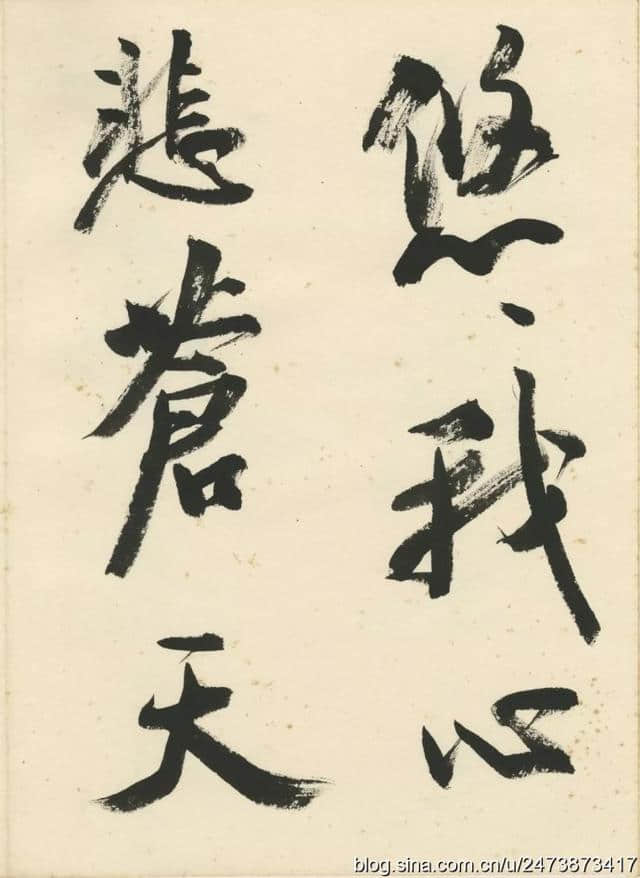 悠〻我心
悲蒼天
blog.sina.com.cn/u/2473873417